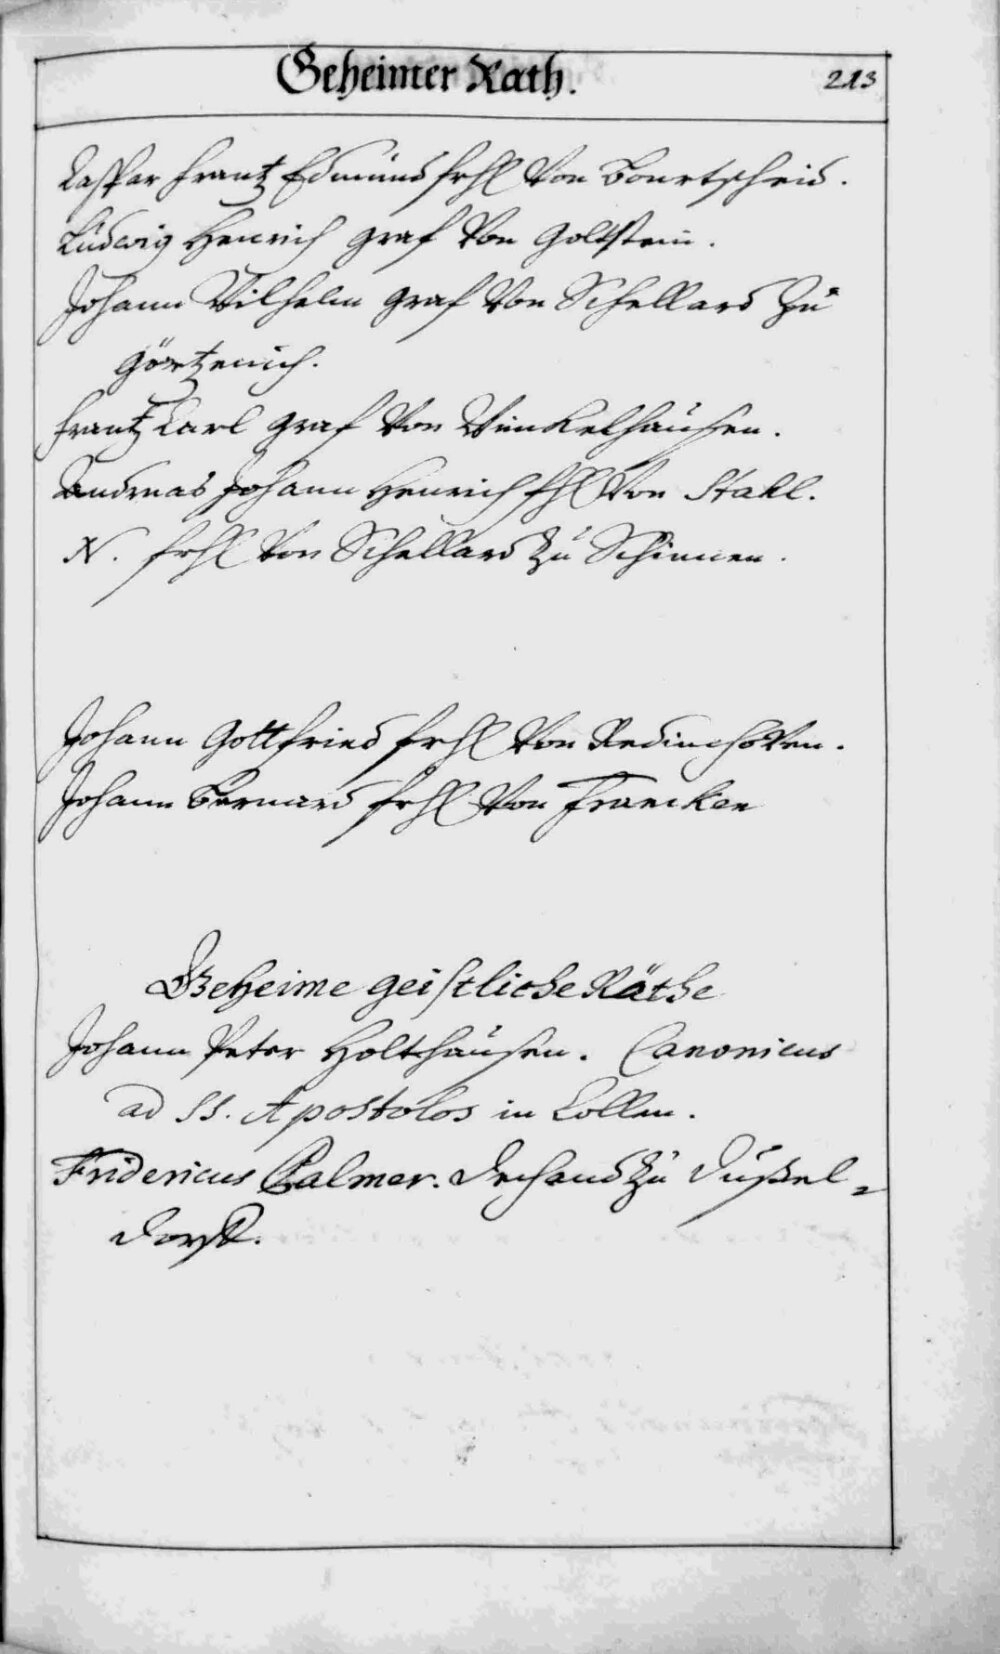 Geheimer Rath.
213
Casspar Frantz Edmund frhl Von Bourtscheid.
Ludwig Henrich graf Von Goltstein.
Johann Wilhelm graf Von Schellard Zu
Görtzenich.
Frantz Carl graf Von Winckelhausen.
Andreas Johann Henrich fhl Von Stahl.
N. frhl Von Schellard Zu Schinnen.
Johann Gottfried frhl Von Redinghoven.
Johann Bernard frhl Von Francken
Geheime geistliche Räthe
Johann Peter Holthausen. Canonicus
ad SS. Apostolos in Cöllen.
Fridericus Palmer. Dechand Zu Dussel=
dorff.